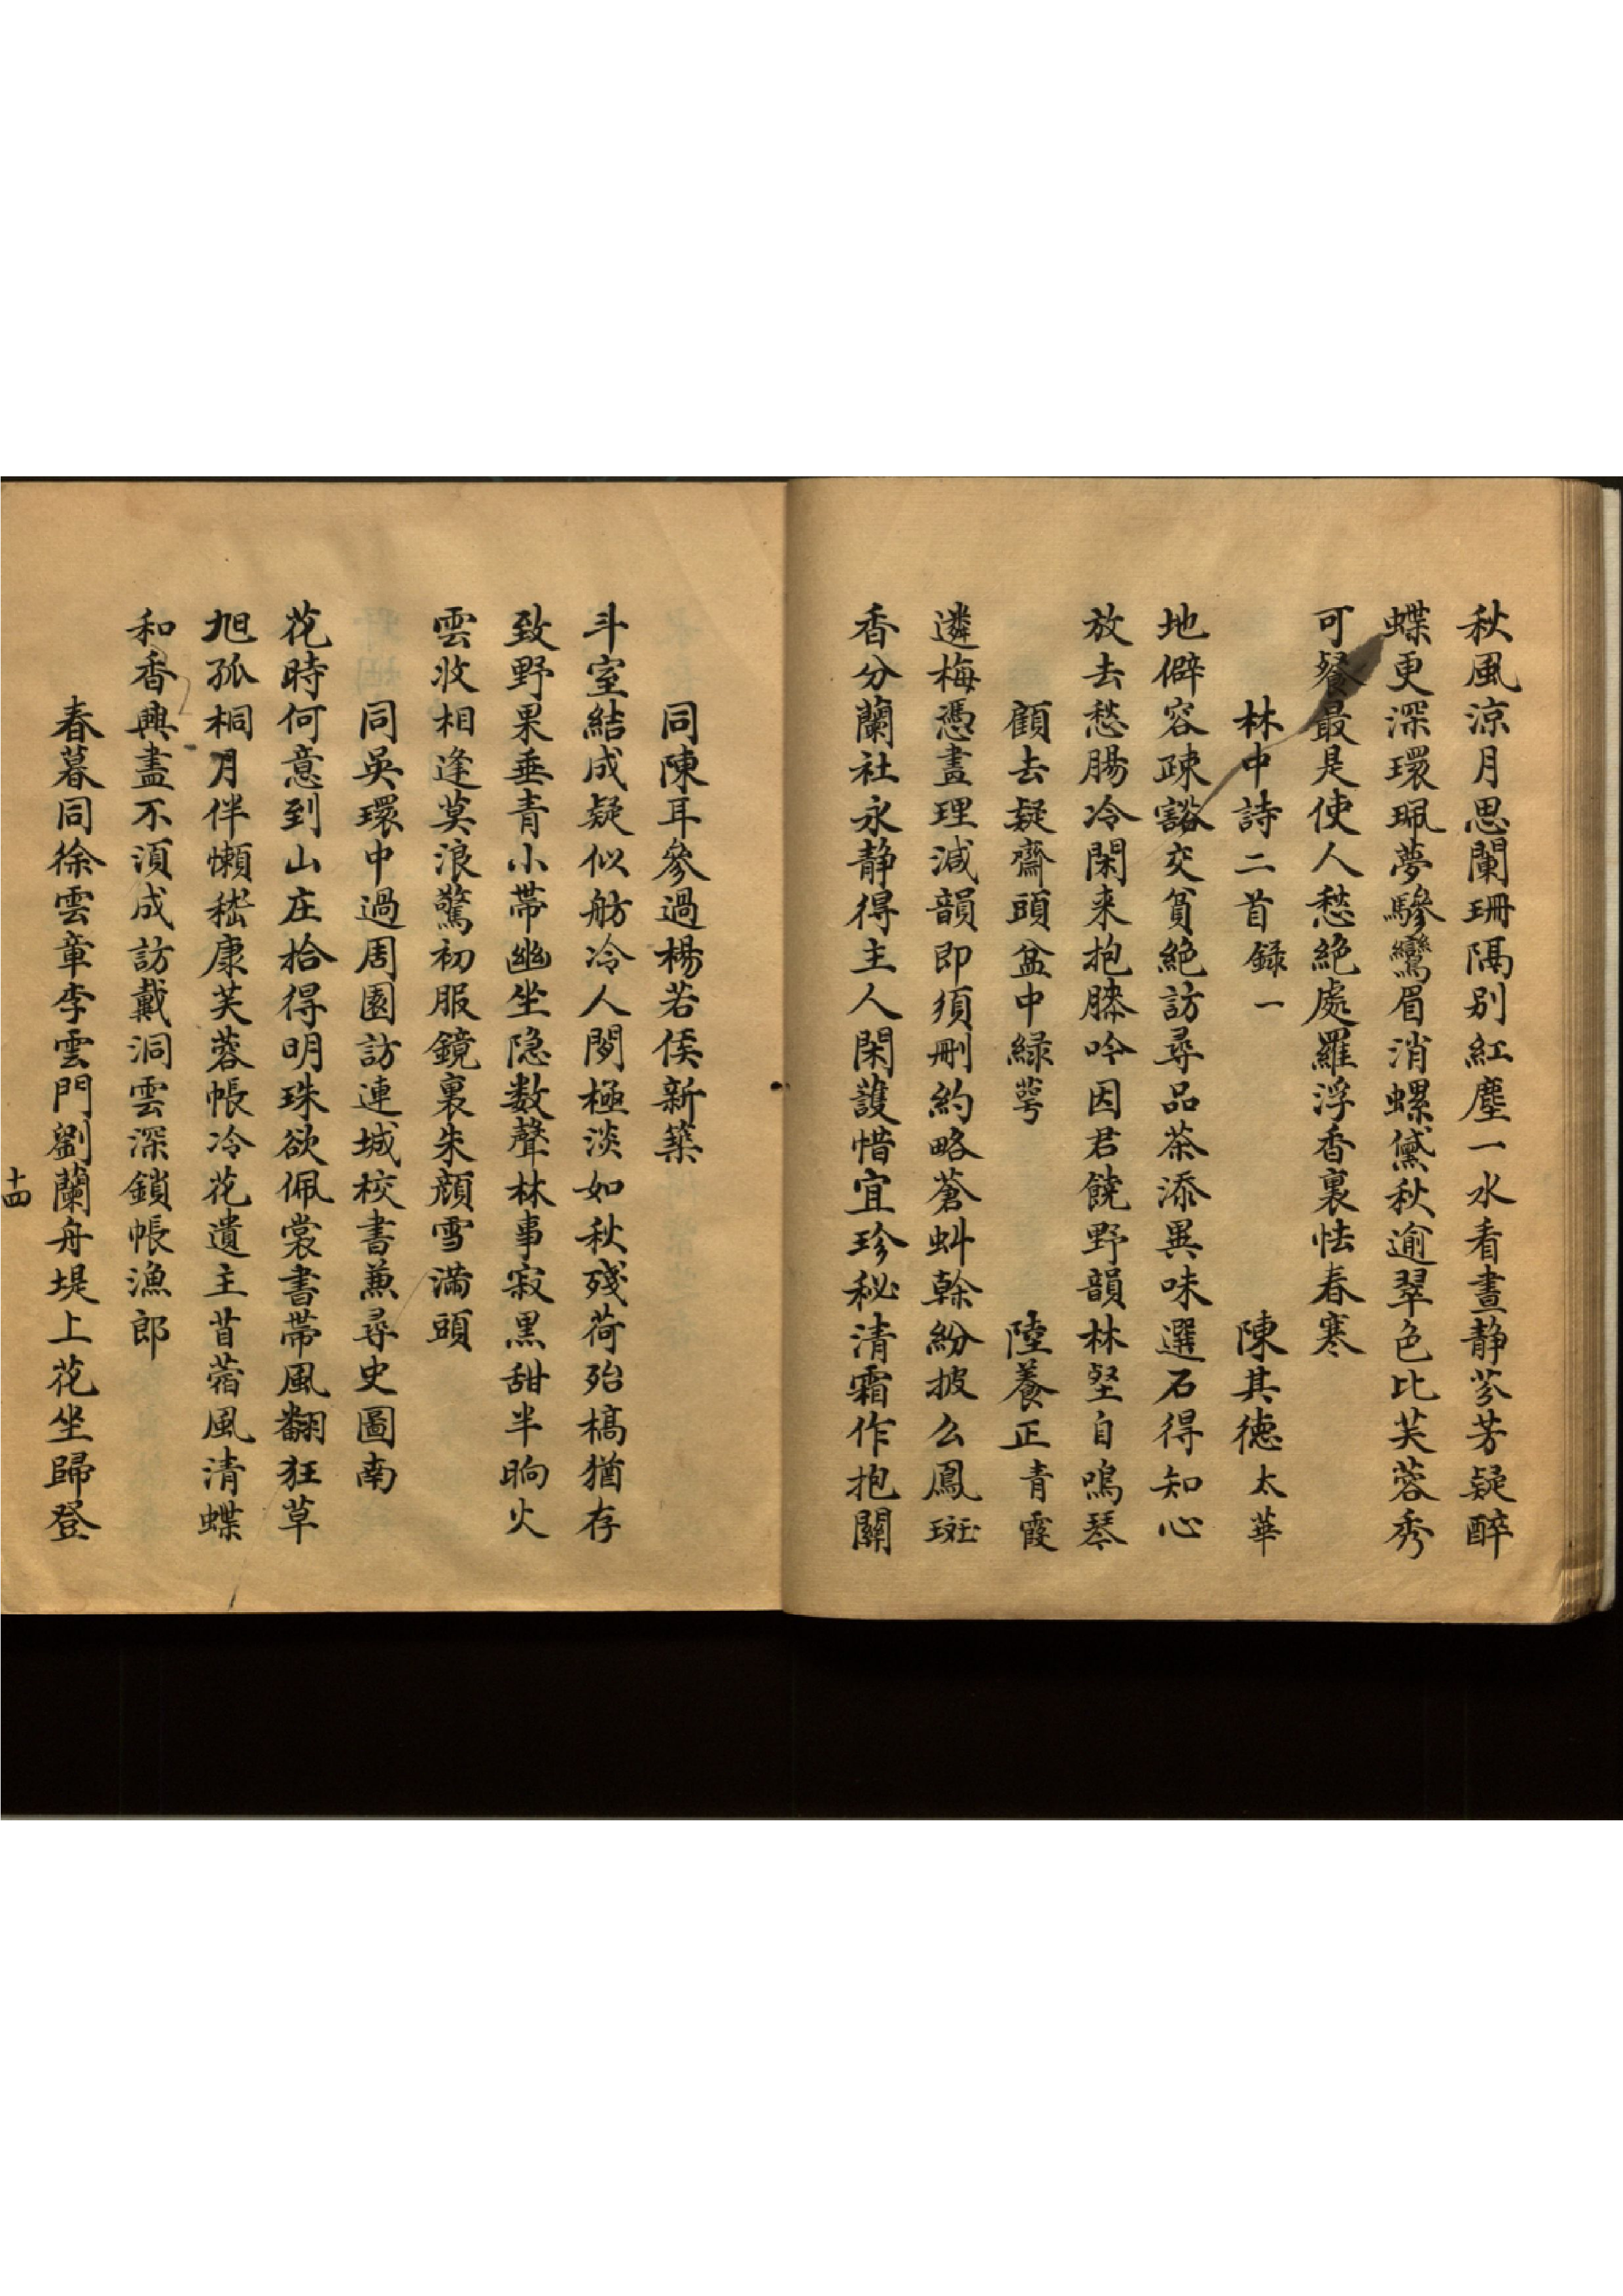 秋風涼月思闌珊隔别紅塵一水看晝静芬芳疑醉
蝶更深環珮夢驂鸞眉消螺黛秋逾翠色比芙蓉秀
可餐最是使人愁絶處羅浮香裏怯春寒
林中詩二首錄一 陳其德太華
地僻容疎豁交貧絶訪尋品茶添異味選石得知心
放去愁腸冷閑来抱膝吟因君饒野韻林壑自鳴琴
顧去疑齋頭盆中緑萼 陸養正青霞
遴梅憑畫理減韻即須刪約略蒼虯幹紛披么鳳斑
香分蘭社永静得主人閑護惜宜珍秘清霜作抱關
同陳耳參過楊若侯新築
斗室結成疑似舫冷人閱極淡如秋殘荷殆槁猶存
致野果垂青小帶幽坐隐数聲林事寂黒甜半晌火
雲收相逢莫浪驚初服鏡裏朱顔雪滿頭
同吳環中過周園訪連城校書兼尋史圖南
花時何意到山庄拾得明珠欲佩裳書帶風翻狂草
旭孤桐月伴懶嵇康芙蓉帳冷花遺主苜蓿風清蝶
和香興盡不須成訪戴洞雲深鎖帳漁郎
春暮同徐雲章李雲門劉蘭舟堤上花坐歸登
十四